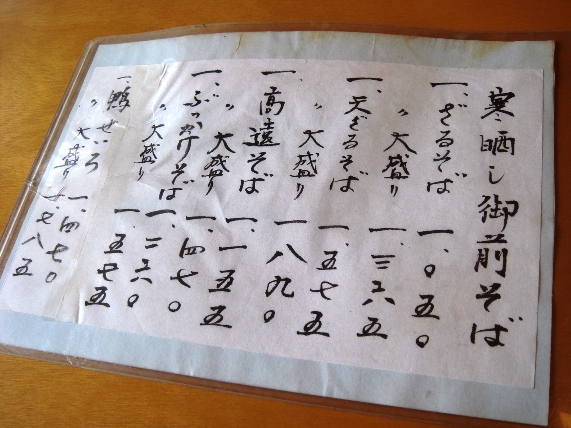 寒晒し御前そば
一、ざるそば 一、〇五〇
〃 大盛り 一、三六五
一、天ざるそば 一、五七五
〃 大盛り 一、八九〇
一、高遠そば 一、一五五
〃 大盛り 一、四七〇
一、ぶっかけそば 一、二六〇
〃 大盛り 一、五七五
一、鴨せいろ 一、四七〇
〃 大盛り 一、七八五